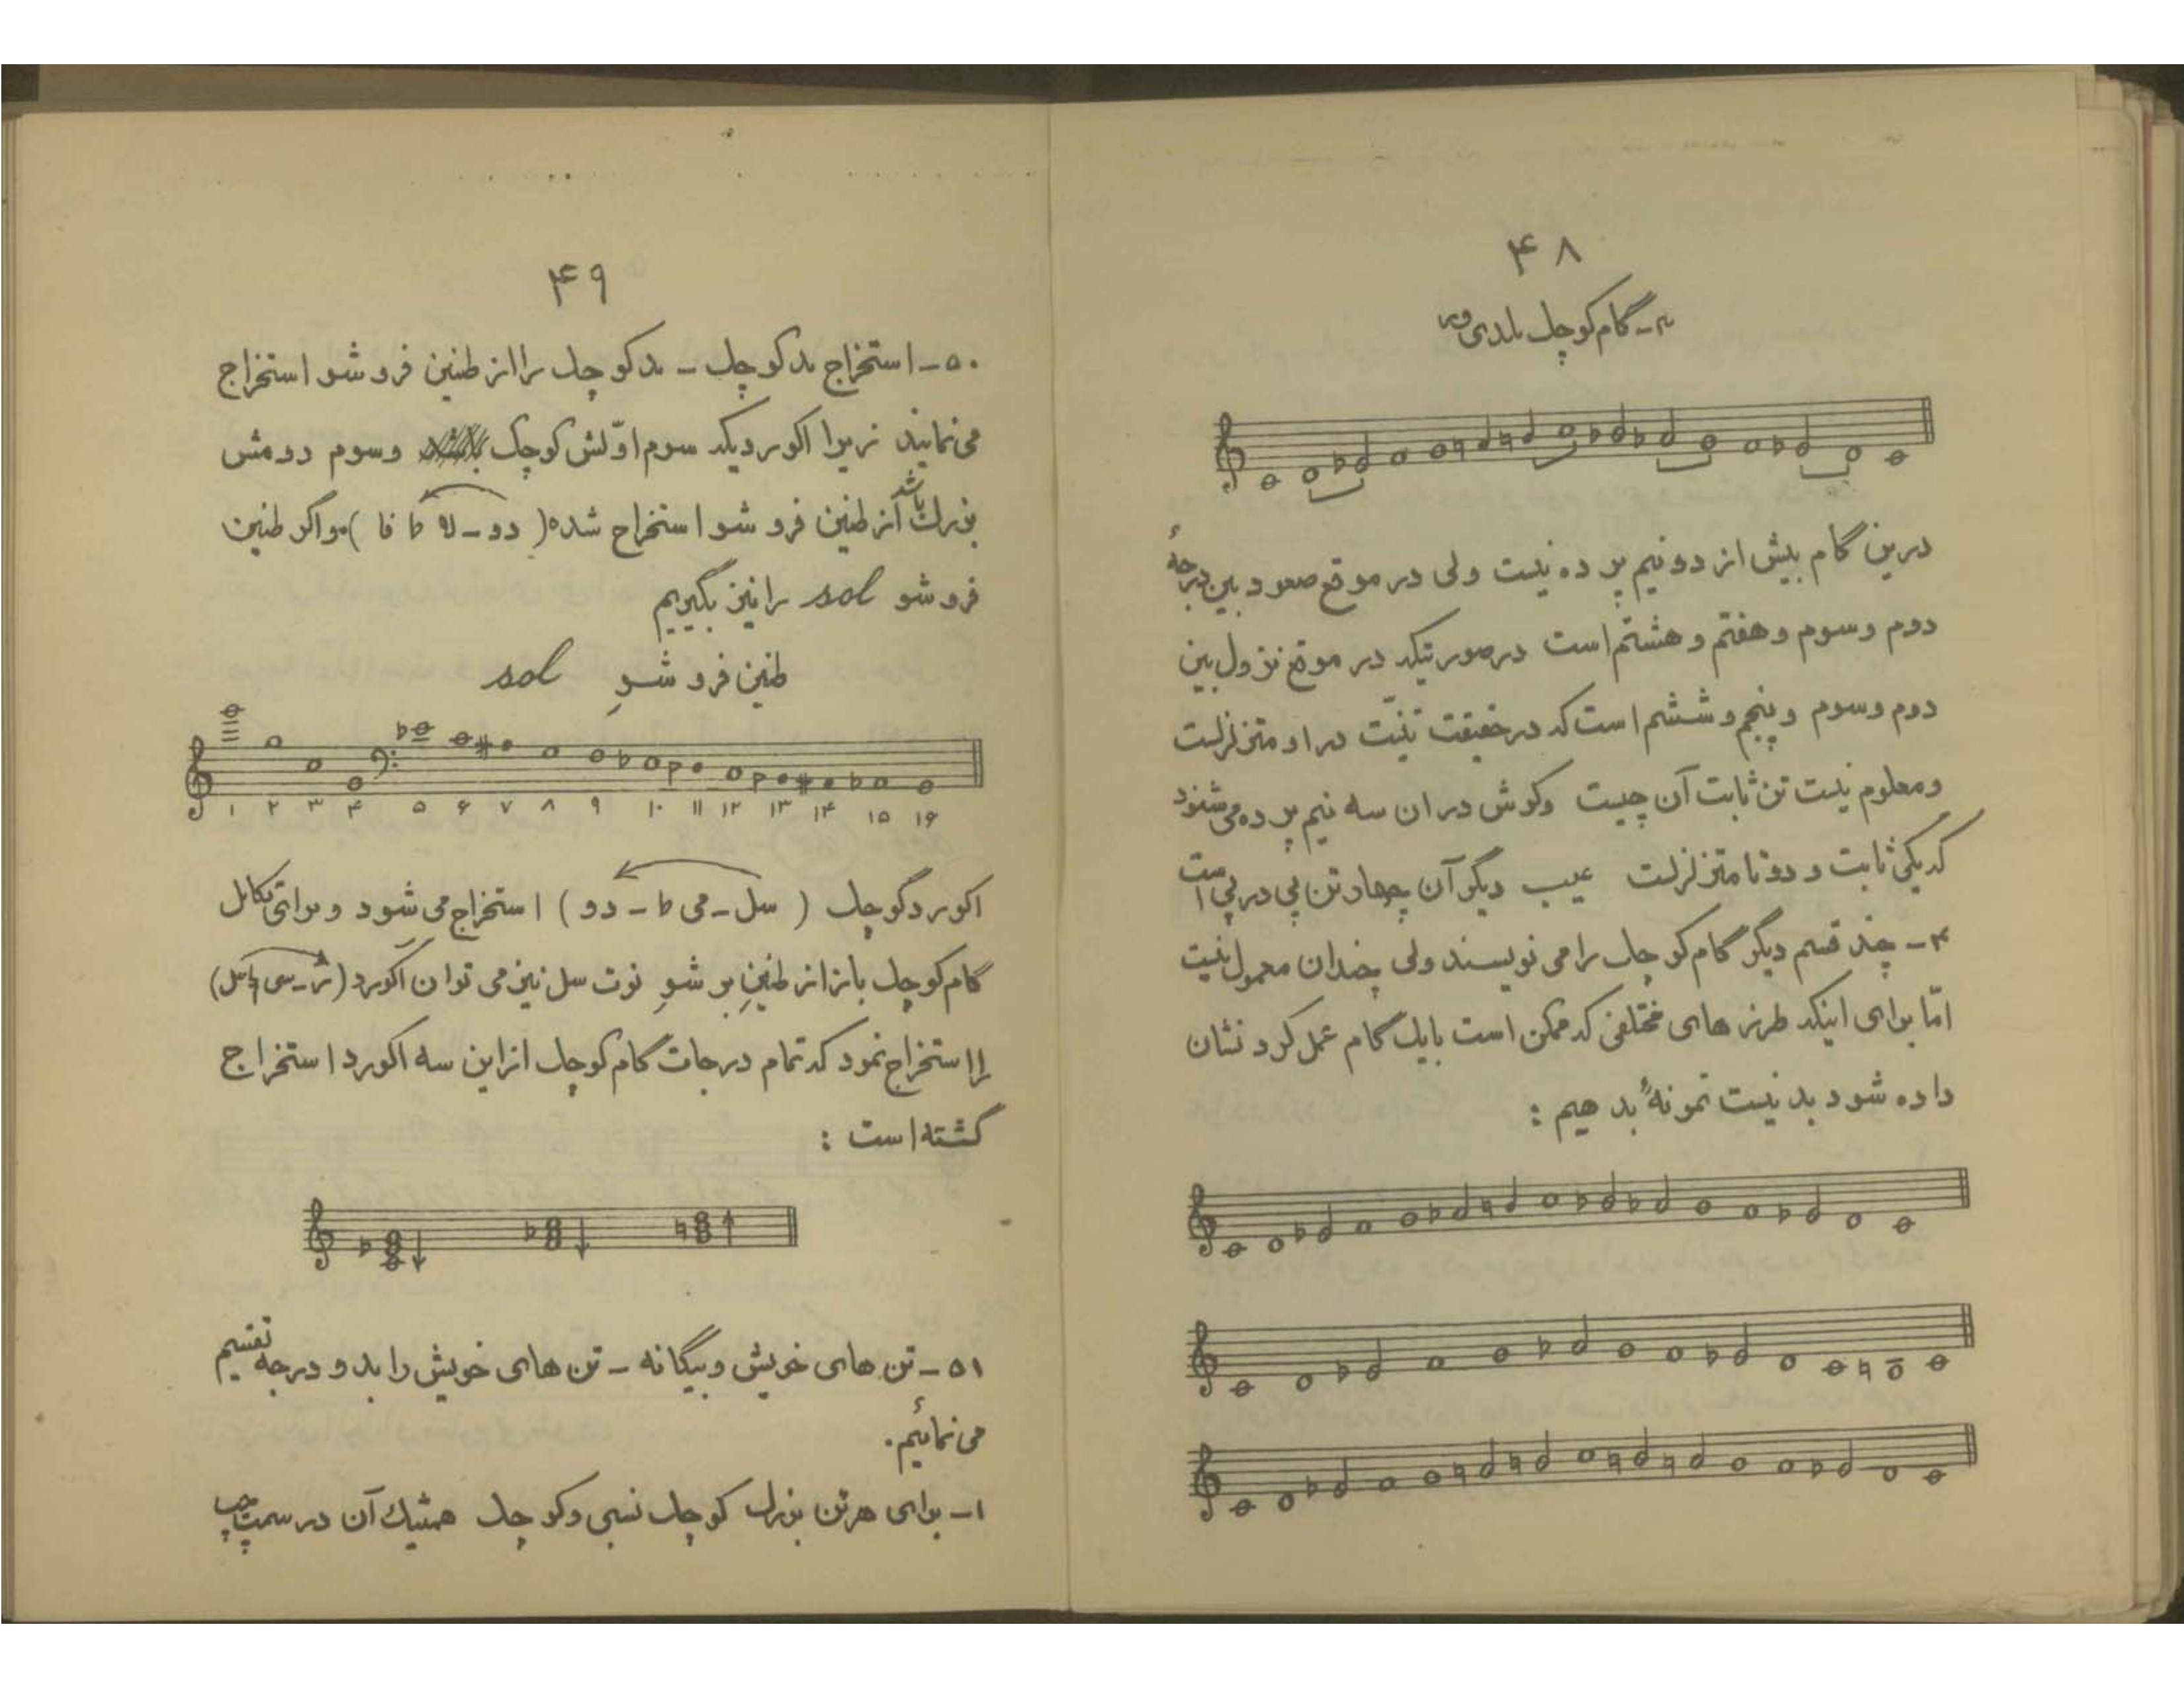 ۴۸
۳- گام کوچک ملدی ور
درین گام بیش از دو نیم پرده نیست ولی در موقع صعود بین درجهٔ
دوم وسوم وهفتم و هشتم است درصورتیکه در موقع نزول بین
دوم وسوم وپنجم وششم است که درحقیقت تنیّت در او متزلزلست
ومعلوم نیست تن ثابت آن چیست وگوش در ان سه نیم پرده می شنود
که یکی ثابت و دوتا متزلزلست عیب دیگر آن چهار تن پی در پی است
۴- چند قسم دیگر گام کوچک را می نویسند ولی چندان معمول نیست
امّا برای اینکه طرز های مختلفی که ممکن است با یک گام عمل کرد نشان
داده شود بد نیست نمونهٔ بدهیم :
۴۹
۵۰- استخراج مد کوچک - مد کوچک را از طنین فروشو استخراج
می نمایند زیرا اکوردیکه سوم اوّلش کوچک وسوم دومش
بزرک باشد از طنین فروشو استخراج شده (دو- لا b فا) واگر طنین
فروشو sol را نیز بگیریم
طنین فروشوِ sol
۱ ۲ ۳ ۴ ۵ ۶ ۷ ۸ ۹ ۱۰ ۱۱ ۱۲ ۱۳ ۱۴ ۱۵ ۱۶
اکورد کوچک (سل- می b - دو) استخراج می شود و برای تکامل
گام کوچک باز از طنینِ بر شوِ نوت سل نیز می توان آکورد (ر- سی ♮ سل)
را استخراج نمود که تمام درجات گام کوچک از این سه اکورد استخراج
گشته است :
۵۱- تن های خویش وبیگانه - تن های خویش را بدو درجه تقسیم
می نمائیم.
۱- برای هرتن بزرک کوچک نسبی وکوچک همتیک آن در سمت چپ